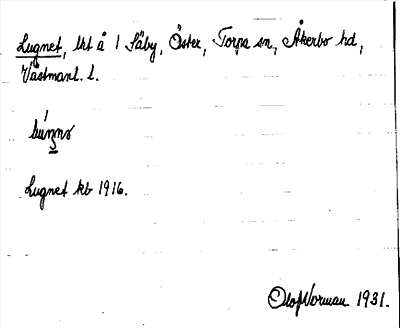 Lugnet, lht å 1 Säby, Öster, Torpa sn, Åkerbo hd,
Västmanl. l.
Lugnet kb 1916.
Olof Norman 1931.